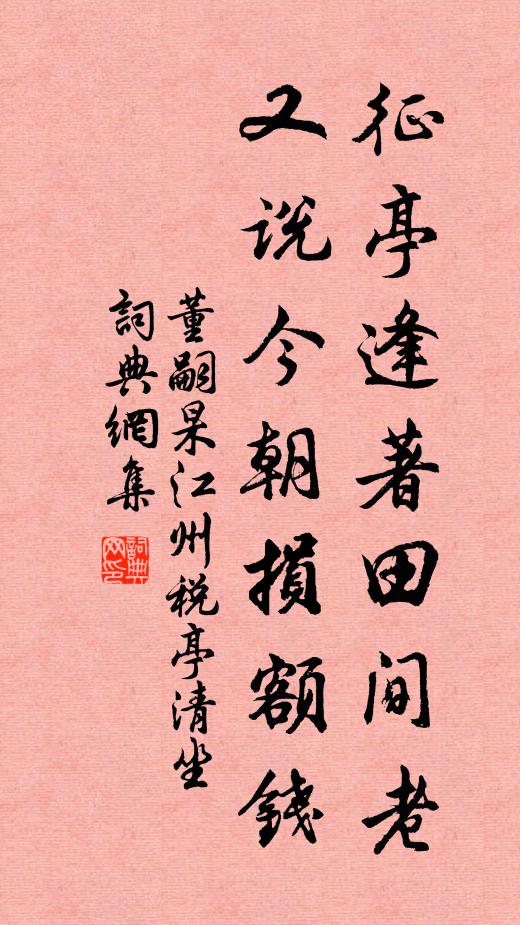 征亭逢著田间老
又说今朝損額錢
董嗣杲江州税亭清坐
詞典網集
詞典网印